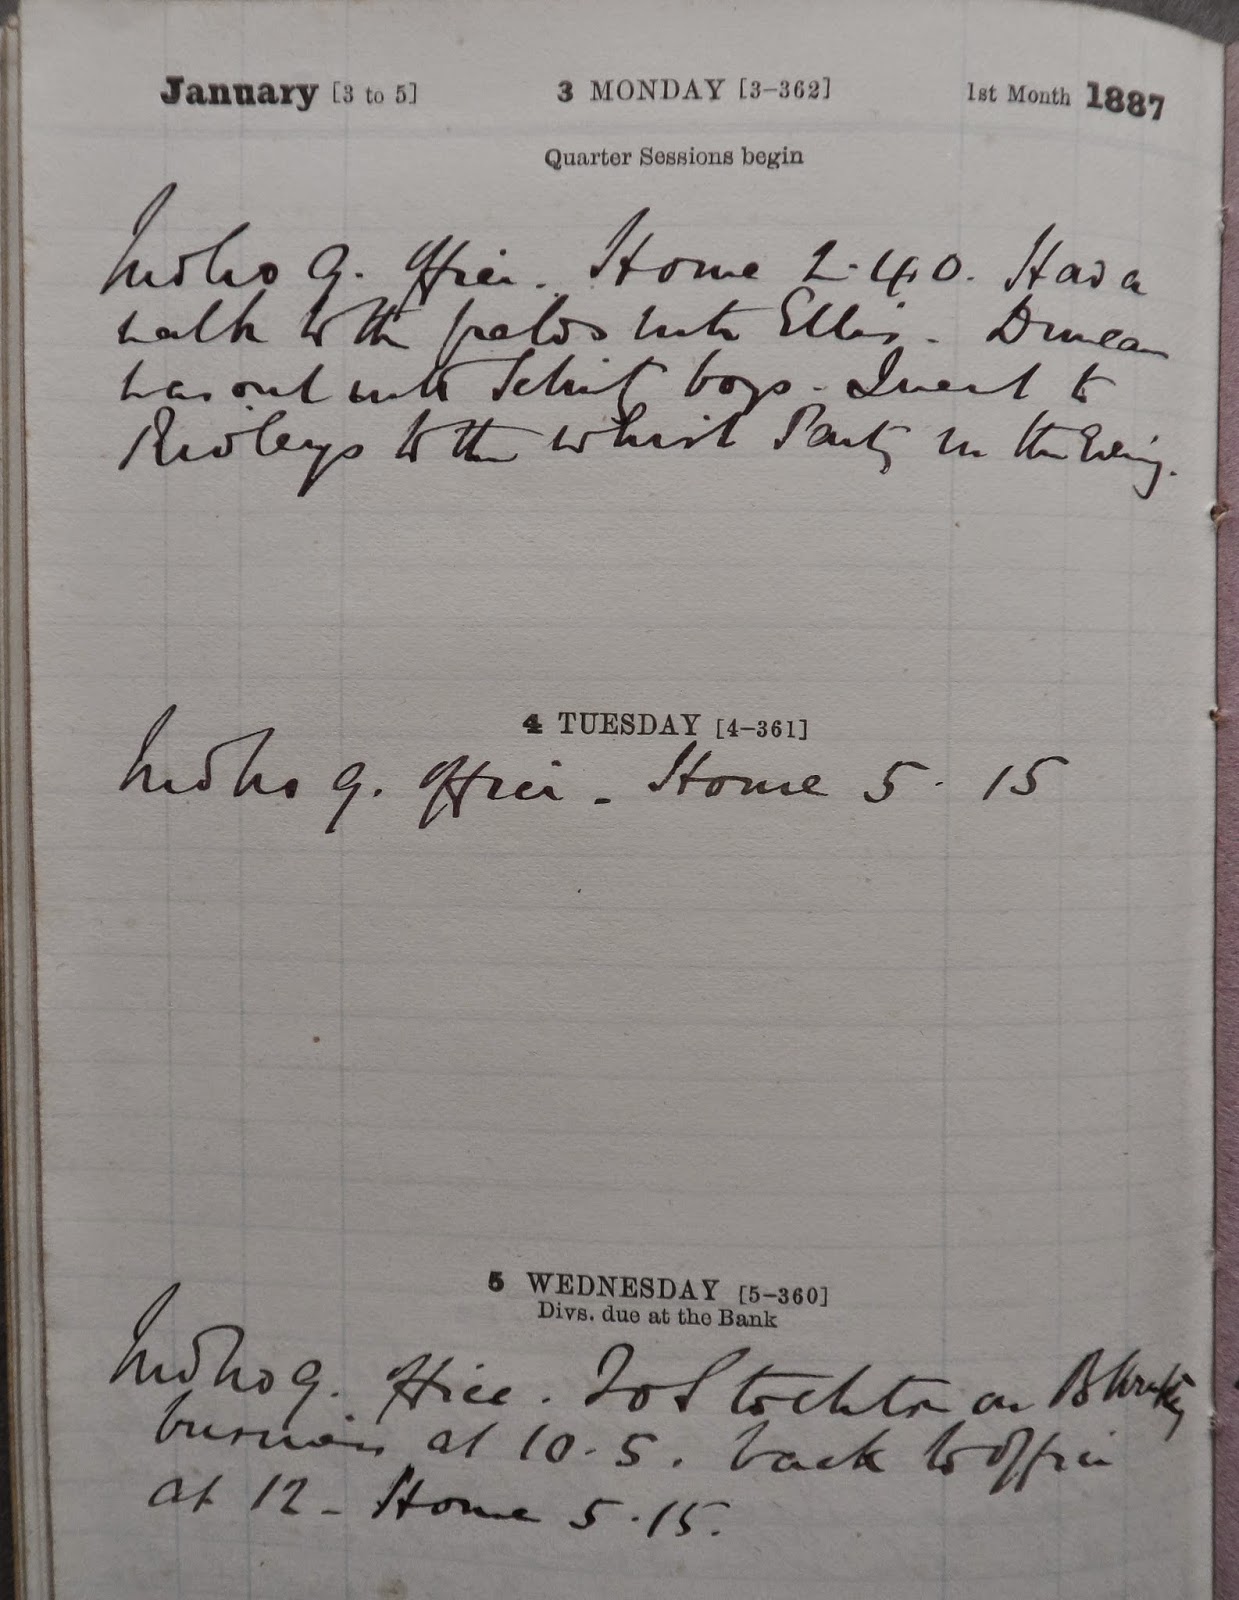 January [3 to 5] 3 MONDAY [3–362] 1st Month 1887
Quarter Sessions begin
9. Office. Home 2.40. Had a
walk to the fields with Ellis. Duncan
was out with boys. I went to
Ridleys to the whist Party in the Evening.
4 TUESDAY [4–361]
9. Office – Home 5.15
5 WEDNESDAY [5–360]
Divs. due at the Bank
9. Office. To Stockton on
business at 10.5. back to Office
at 12 – Home 5.15.